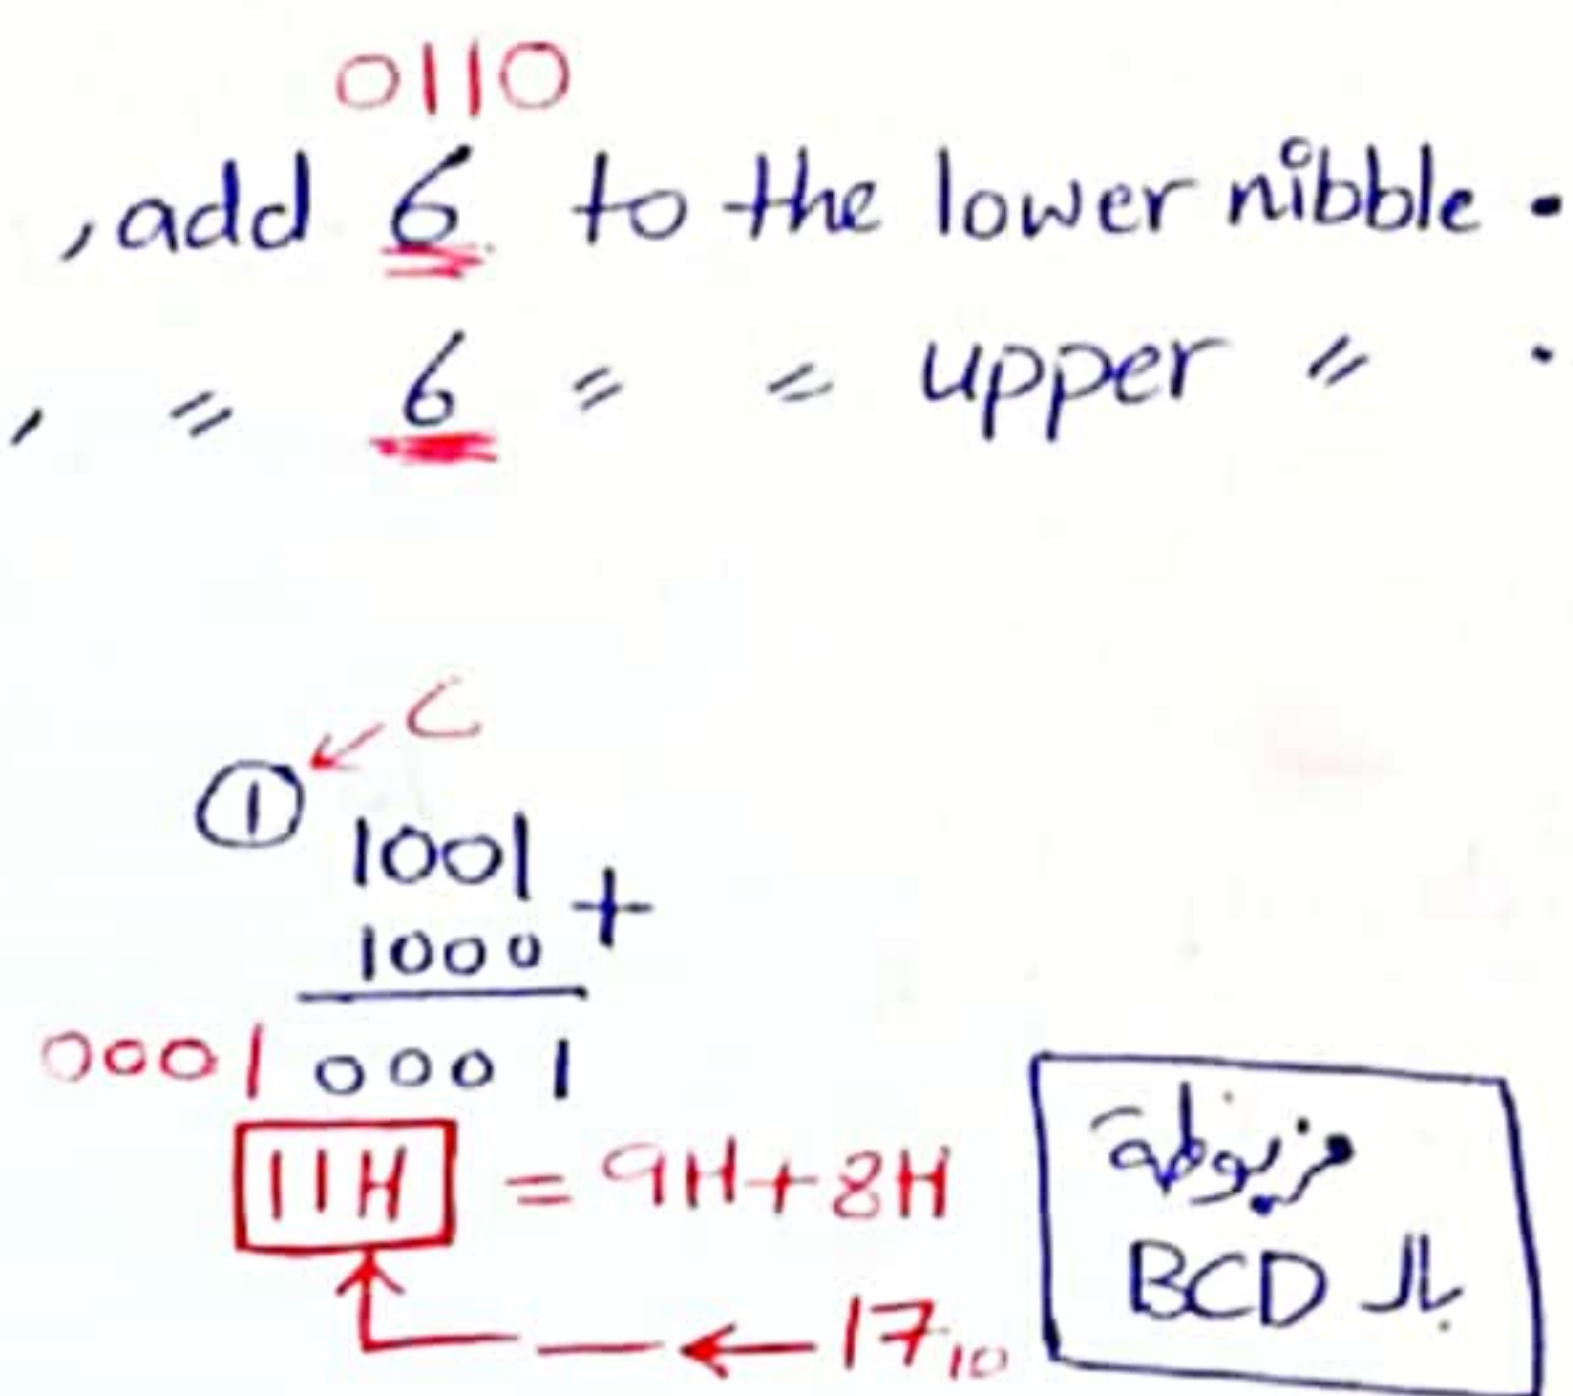 0110
, add 6 to the lower nibble .
, = 6 = = upper " .
C
1
1001
+
1000
0001 0001
11H = 9H+8H
17₁₀
مربوطة
بال BCD